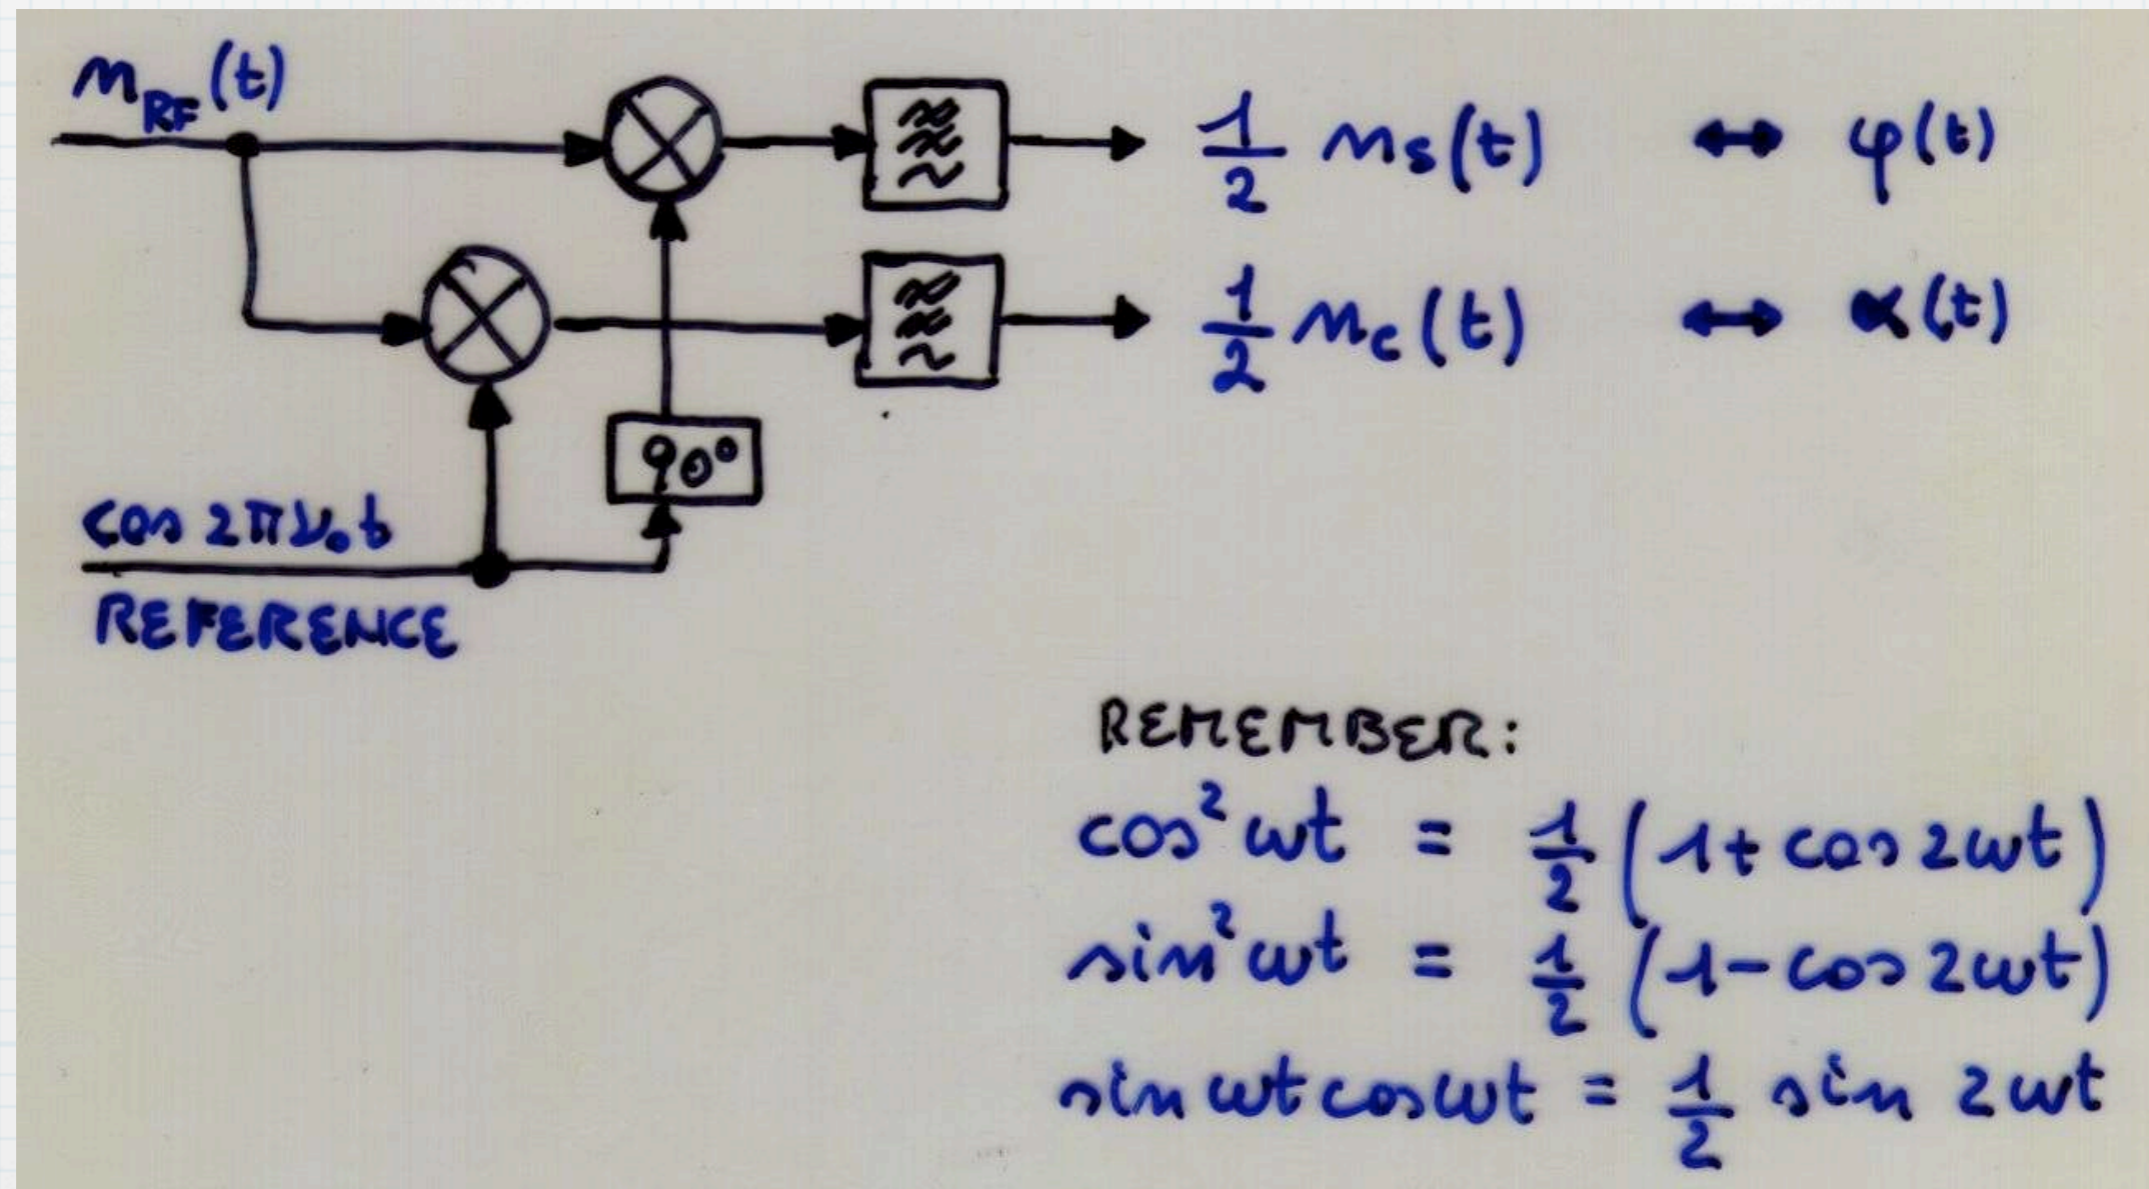 n_RF(t)
1/2 n_s(t) ↔ φ(t)
1/2 n_c(t) ↔ α(t)
90°
cos 2πν₀t
REFERENCE
REMEMBER:
cos² ωt = 1/2 (1 + cos 2ωt)
sin² ωt = 1/2 (1 - cos 2ωt)
sin ωt cos ωt = 1/2 sin 2ωt